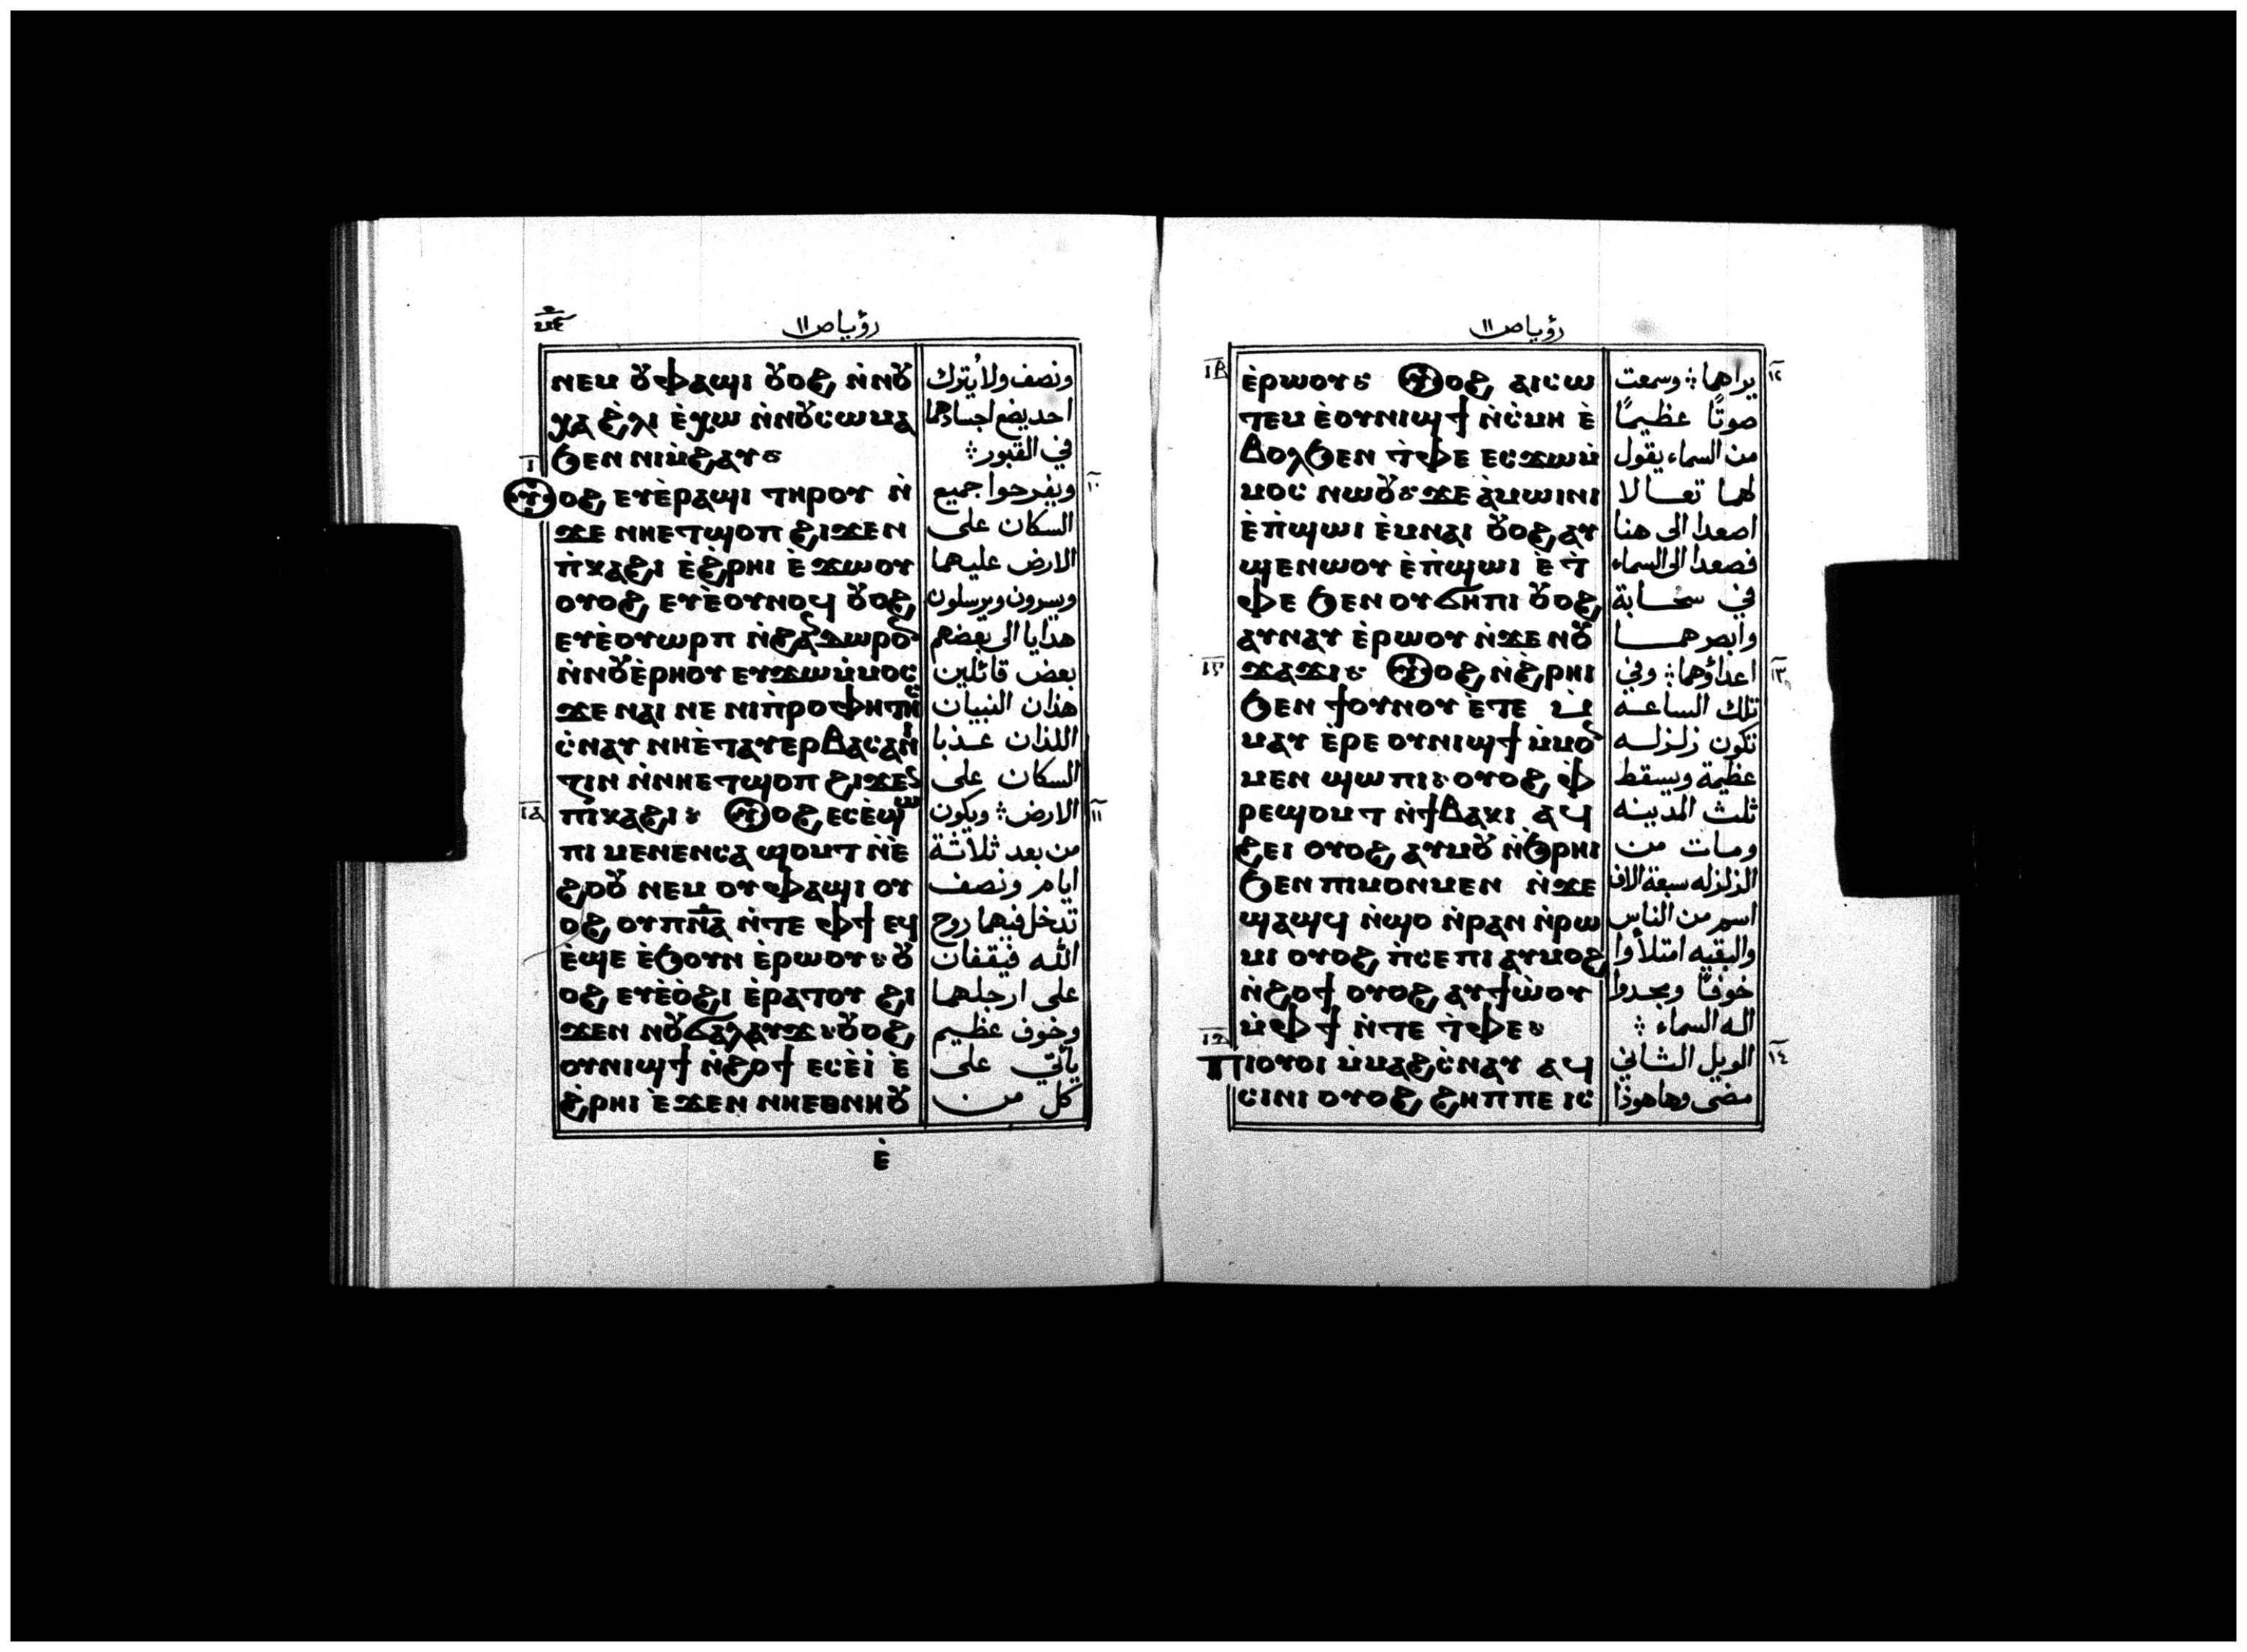 رؤيا ص ١١
ⲛⲉⲙ ⲟⲩⲫⲁϣⲓ ⲟⲩⲟϩ ⲛ̀ⲛⲟⲩ
ⲭⲁ ϩ̀ⲗⲓ ⲉ̀ⲭⲱ ⲛ̀ⲛⲟⲩⲥⲱⲙⲁ
ϧⲉⲛ ⲛⲓⲙ̀ϩⲁⲩ
ⲓ̅
ⲟⲩⲟϩ ⲉⲩⲉ̀ⲣⲁϣⲓ ⲧⲏⲣⲟⲩ ⲛ̀
ϫⲉ ⲛⲏⲉⲧϣⲟⲡ ϩⲓϫⲉⲛ
ⲡ̀ⲕⲁϩⲓ ⲉ̀ϩ̀ⲣⲏⲓ ⲉ̀ϫⲱⲟⲩ
ⲟⲩⲟϩ ⲉⲩⲉ̀ⲟⲩⲛⲟϥ ⲟⲩⲟϩ
ⲉⲩⲉ̀ⲟⲩⲱⲣⲡ ⲛ̀ϩⲁⲛⲇⲱⲣⲟⲛ
ⲛ̀ⲛⲟⲩⲉ̀ⲣⲏⲟⲩ ⲉⲩϫⲱⲙ̀ⲙⲟⲥ
ϫⲉ ⲛⲁⲓ ⲛⲉ ⲛⲓⲡ̀ⲣⲟⲫⲏⲧⲏⲥ
ⲥ̀ⲛⲁⲩ ⲛⲏⲉ̀ⲧⲁⲩⲉⲣⲃⲁⲥⲁⲛⲓ
ⲍⲓⲛ ⲛ̀ⲛⲏⲉⲧϣⲟⲡ ϩⲓϫⲉⲛ
ⲓ̅ⲁ̅
ⲡⲓⲕⲁϩⲓ ⲟⲩⲟϩ ⲉⲥⲉ̀ϣⲱ
ⲡⲓ ⲙⲉⲛⲉⲛⲥⲁ ϣⲟⲙⲧ ⲛ̀ⲉ̀
ϩⲟⲟⲩ ⲛⲉⲙ ⲟⲩⲫⲁϣⲓ ⲟⲩ
ⲟϩ ⲟⲩⲡ̅ⲛ̅ⲁ̅ ⲛ̀ⲧⲉ ⲫϯ ⲉϥ
ⲉ̀ϣⲉ ⲉ̀ϧⲟⲩⲛ ⲉ̀ⲣⲱⲟⲩ ⲟⲩ
ⲟϩ ⲉⲩⲉ̀ⲟ̀ϩⲓ ⲉ̀ⲣⲁⲧⲟⲩ ϩⲓ
ϫⲉⲛ ⲛⲟⲩϭⲁⲗⲁⲩϫ ⲟⲩⲟϩ
ⲟⲩⲛⲓϣϯ ⲛ̀ϩⲟϯ ⲉⲥⲉ̀ⲓ̀ ⲉ̀
ϩ̀ⲣⲏⲓ ⲉ̀ϫⲉⲛ ⲛⲏⲉⲑⲛⲏⲟⲩ
ⲉ̀
ونصف ولا يُترك
احد يضع اجسادهما
في القبور
١٠
ويفرحوا جميع
السكان على
الارض عليهما
ويسرون ويرسلون
هدايا الى بعضهم
بعض قائلين
هذان النبيان
اللذان عذبا
السكان على
١١
الارض ويكون
من بعد ثلاثة
ايام ونصف
تدخل فيهما روح
الله فيقفان
على ارجلهما
وخوف عظيم
يأتي على
كل من
رؤيا ص ١١
ⲓ̅ⲃ̅
ⲉ̀ⲣⲱⲟⲩ ⲟⲩⲟϩ ⲁⲓⲥⲱ
ⲧⲉⲙ ⲉ̀ⲟⲩⲛⲓϣϯ ⲛ̀ⲥ̀ⲙⲏ ⲉ̀
ⲃⲟⲗϧⲉⲛ ⲧ̀ⲫⲉ ⲉⲥϫⲱⲙ̀
ⲙⲟⲥ ⲛⲱⲟⲩ ϫⲉ ⲁ̀ⲙⲱⲓⲛⲓ
ⲉ̀ⲡ̀ϣⲱⲓ ⲉ̀ⲙⲛⲁⲓ ⲟⲩⲟϩ ⲁⲩ
ϣⲉⲛⲱⲟⲩ ⲉ̀ⲡ̀ϣⲱⲓ ⲉ̀ⲧ̀
ⲫⲉ ϧⲉⲛ ⲟⲩϭⲏⲡⲓ ⲟⲩⲟϩ
ⲁⲩⲛⲁⲩ ⲉ̀ⲣⲱⲟⲩ ⲛ̀ϫⲉ ⲛⲟⲩ
ⲓ̅ⲅ̅
ϫⲁϫⲓ ⲟⲩⲟϩ ⲛ̀ϩ̀ⲣⲏⲓ
ϧⲉⲛ ϯⲟⲩⲛⲟⲩ ⲉ̀ⲧⲉ ⲙ̀
ⲙⲁⲩ ⲉ̀ⲣⲉ ⲟⲩⲛⲓϣϯ ⲙ̀ⲙⲟⲛ
ⲙⲉⲛ ϣⲱⲡⲓ ⲟⲩⲟϩ ⲫ̀
ⲣⲉϣⲟⲙⲧ ⲛ̀ϯⲃⲁⲕⲓ ⲁϥ
ϩⲉⲓ ⲟⲩⲟϩ ⲁⲩⲙⲟⲩ ⲛ̀ϧⲣⲏⲓ
ϧⲉⲛ ⲡⲓⲙⲟⲛⲙⲉⲛ ⲛ̀ϫⲉ
ϣⲁϣϥ ⲛ̀ϣⲟ ⲛ̀ⲣⲁⲛ ⲛ̀ⲣⲱ
ⲙⲓ ⲟⲩⲟϩ ⲡ̀ⲥⲉⲡⲓ ⲁⲩⲙⲟϩ
ⲛ̀ϩⲟϯ ⲟⲩⲟϩ ⲁⲩϯⲱ̀ⲟⲩ
ⲙ̀ⲫϯ ⲛ̀ⲧⲉ ⲧ̀ⲫⲉ
ⲓ̅ⲇ̅
ⲡⲓⲟⲩⲟⲓ ⲙ̀ⲙⲁϩⲥ̀ⲛⲁⲩ ⲁϥ
ⲥⲓⲛⲓ ⲟⲩⲟϩ ϩⲏⲡⲡⲉ ⲓⲥ
١٢
يراهما وسمعت
صوتًا عظيمًا
من السماء يقول
لهما تعالا
اصعدا الى هنا
فصعدا الى السماء
في سحابة
وابصرهما
١٣
اعداؤهما وفي
تلك الساعه
تكون زلزله
عظيمة ويسقط
ثلث المدينه
ومات من
الزلزله سبعة الاف
اسم من الناس
والبقيه امتلأوا
خوفًا ومجدوا
اله السماء
١٤
الويل الثاني
مضى وهاهوذا